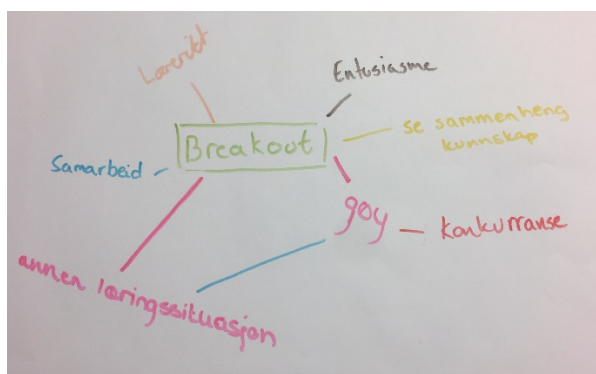 Lærerikt
Entusiasme
Breakout
se sammenheng
kunnskap
Samarbeid
gøy
konkurranse
annen læringssituasjon